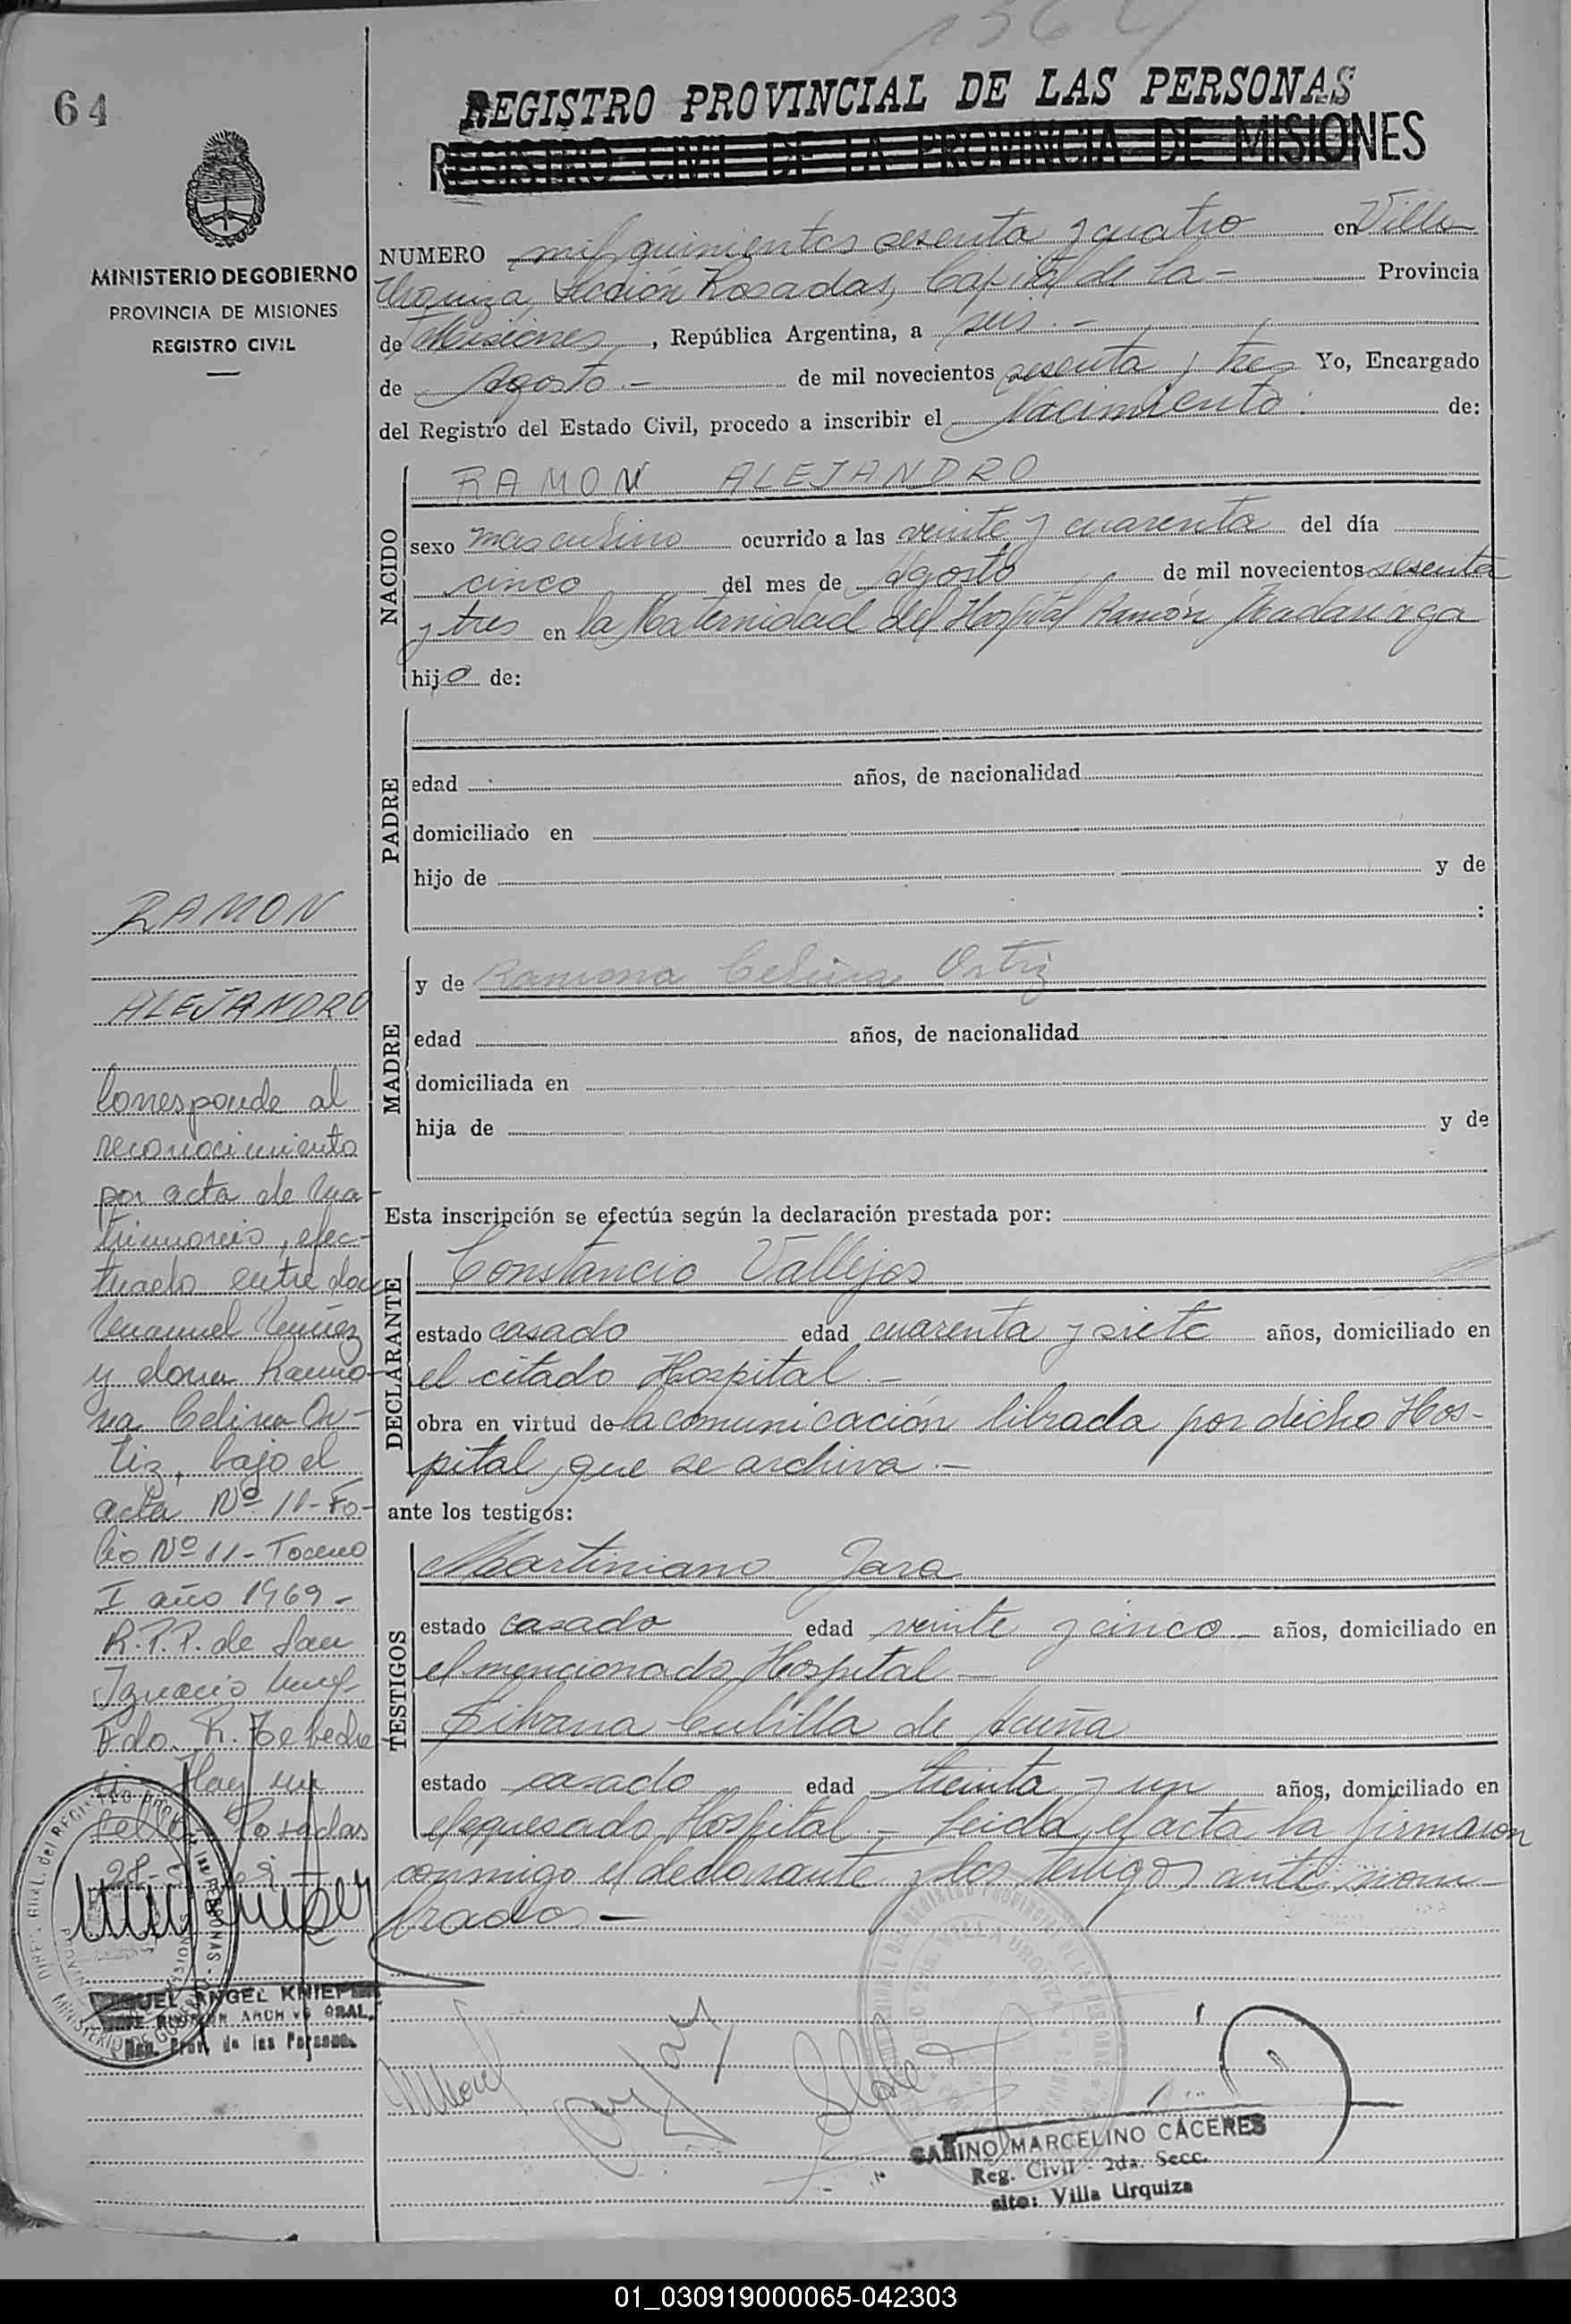 1564
64
REGISTRO PROVINCIAL DE LAS PERSONAS
REGISTRO CIVIL DE LA PROVINCIA DE MISIONES
MINISTERIO DE GOBIERNO
PROVINCIA DE MISIONES
REGISTRO CIVIL
NUMERO mil quinientos sesenta y cuatro en Villa
Urquiza, Sección Posadas, Capital de la - Provincia
de Misiones, República Argentina, a seis. -
de Agosto. - de mil novecientos sesenta y tres Yo, Encargado
del Registro del Estado Civil, procedo a inscribir el Nacimiento. de:
NACIDO
RAMON ALEJANDRO
sexo masculino ocurrido a las veinte y cuarenta del día
cinco del mes de Agosto de mil novecientos sesenta
y tres en la Maternidad del Hospital Ramón Madariaga
hijo de:
PADRE
edad años, de nacionalidad
domiciliado en
hijo de y de
:
MADRE
y de Ramona Celina Ortiz
edad años, de nacionalidad
domiciliada en
hija de y de
Esta inscripción se efectúa según la declaración prestada por:
DECLARANTE
Constancio Vallejos
estado casado edad cuarenta y siete años, domiciliado en
el citado Hospital. -
obra en virtud de la comunicación librada por dicho Hos-
pital, que se archiva. -
ante los testigos:
TESTIGOS
Martiniano Jara
estado casado edad veinte y cinco - años, domiciliado en
el mencionado Hospital -
Silvana Cubilla de Acuña
estado casado edad treinta y un años, domiciliado en
el expresado Hospital. - Leida el acta la firmaron
conmigo el declarante y los testigos ante nom-
brados -
RAMON
ALEJANDRO
Corresponde al
reconocimiento
por acta de ma-
trimonio, efec-
tuado entre don
Manuel Nuñez
y doña Ramo-
na Celina Or-
tiz, bajo el
acta Nº 11 - Fo-
lio Nº 11 - Tomo
I año 1969 -
R.P.P. de San
Ignacio
Fdo. R.
Hay un
sello Posadas
28-
MIGUEL ANGEL KNIEPER
JEFE DIVISION ARCHIVO GRAL.
Reg. Prov. de las Personas
SABINO MARCELINO CACERES
Reg. Civil - 2da. Secc.
sito: Villa Urquiza
01_030919000065-042303